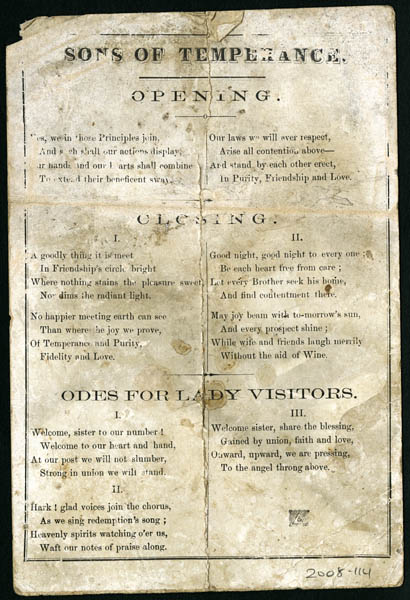 SONS OF TEMPERANCE.
OPENING.
Yes, we in those Principles join,
And such shall our actions display;
Our hands and our Hearts shall combine
To extend their beneficent sway.
Our laws we will ever respect,
Arise all contention above—
And stand by each other erect,
In Purity, Friendship and Love.
CLOSING.
I.
A goodly thing it is meet
In Friendship's circle bright
Where nothing stains the pleasure sweet
Nor dims the radiant light.
No happier meeting earth can see
Than where the joy we prove,
Of Temperance and Purity,
Fidelity and Love.
II.
Good night, good night to every one;
Be each heart free from care;
Let every Brother seek his home,
And find contentment there.
May joy beam with to-morrow's sun,
And every prospect shine;
While wife and friends laugh merrily
Without the aid of Wine.
ODES FOR LADY VISITORS.
I.
Welcome, sister to our number!
Welcome to our heart and hand,
At our post we will not slumber,
Strong in union we will stand.
II.
Hark! glad voices join the chorus,
As we sing redemption's song;
Heavenly spirits watching o'er us,
Waft our notes of praise along.
III.
Welcome sister, share the blessing,
Gained by union, faith and love,
Onward, upward, we are pressing,
To the angel throng above.
2008-114